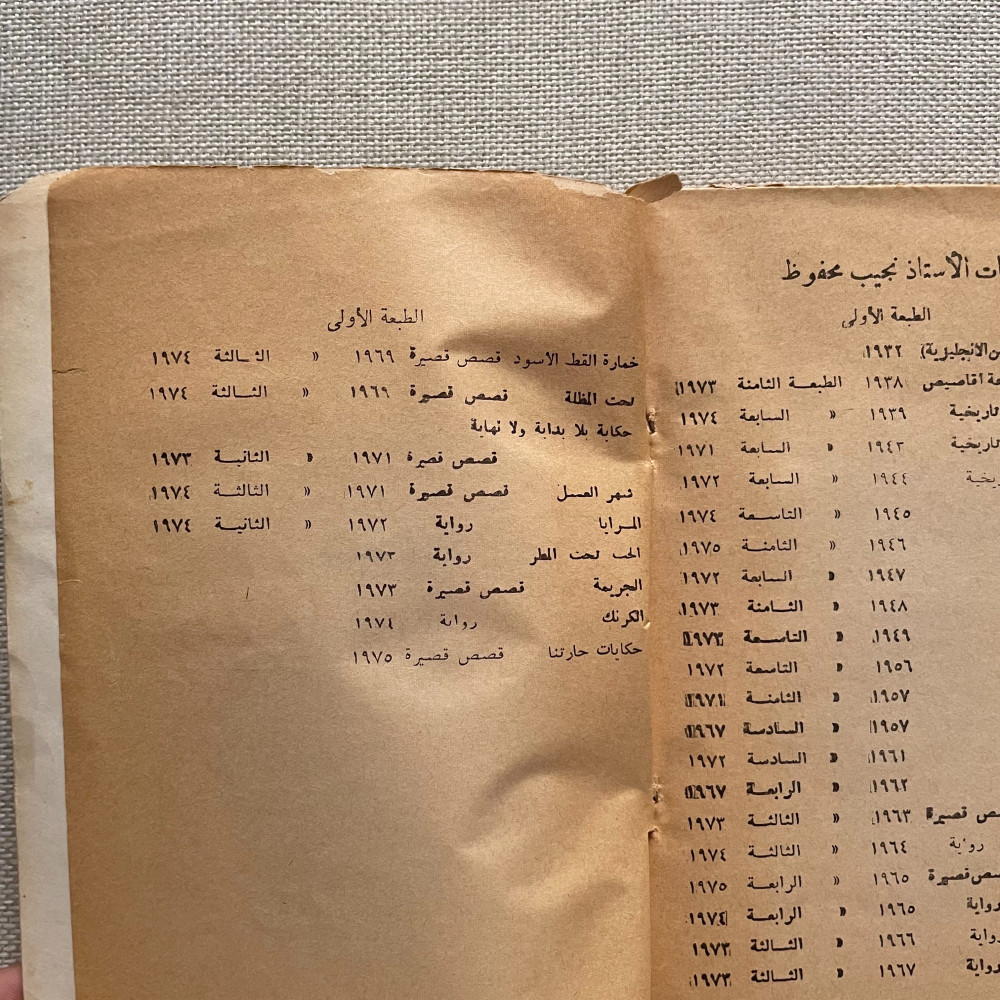 الأستاذ نجيب محفوظ
الطبعة الأولى
١٩٣٢
أقاصيص ١٩٣٨ الطبعة الثامنة ١٩٧٣
١٩٣٩ » السابعة ١٩٧٤
١٩٤٣ » السابعة ١٩٧١
١٩٤٤ » السابعة ١٩٧٢
١٩٤٥ » التاسعة ١٩٧٤
١٩٤٦ » الثامنة ١٩٧٥
١٩٤٧ » السابعة ١٩٧٢
١٩٤٨ » الثامنة ١٩٧٣
١٩٤٩ » التاسعة ١٩٧٣
١٩٥٦ » التاسعة ١٩٧٢
١٩٥٧ » الثامنة ١٩٧١
١٩٥٧ » السادسة ١٩٦٧
١٩٦١ » السادسة ١٩٧٢
١٩٦٢ » الرابعة ١٩٦٧
قصيرة ١٩٦٣ » الثالثة ١٩٧٣
رواية ١٩٦٤ » الثالثة ١٩٧٤
قصيرة ١٩٦٥ » الرابعة ١٩٧٥
رواية ١٩٦٥ » الرابعة ١٩٧٤
رواية ١٩٦٦ » الثالثة ١٩٧٣
رواية ١٩٦٧ » الثالثة ١٩٧٣
الطبعة الأولى
خمارة القط الاسود قصص قصيرة ١٩٦٩ » الثالثة ١٩٧٤
تحت المظلة قصص قصيرة ١٩٦٩ » الثالثة ١٩٧٤
حكاية بلا بداية ولا نهاية
قصص قصيرة ١٩٧١ » الثانية ١٩٧٣
شهر العسل قصص قصيرة ١٩٧١ » الثالثة ١٩٧٤
المرايا رواية ١٩٧٢ » الثانية ١٩٧٤
الحب تحت المطر رواية ١٩٧٣
الجريمة قصص قصيرة ١٩٧٣
الكرنك رواية ١٩٧٤
حكايات حارتنا قصص قصيرة ١٩٧٥